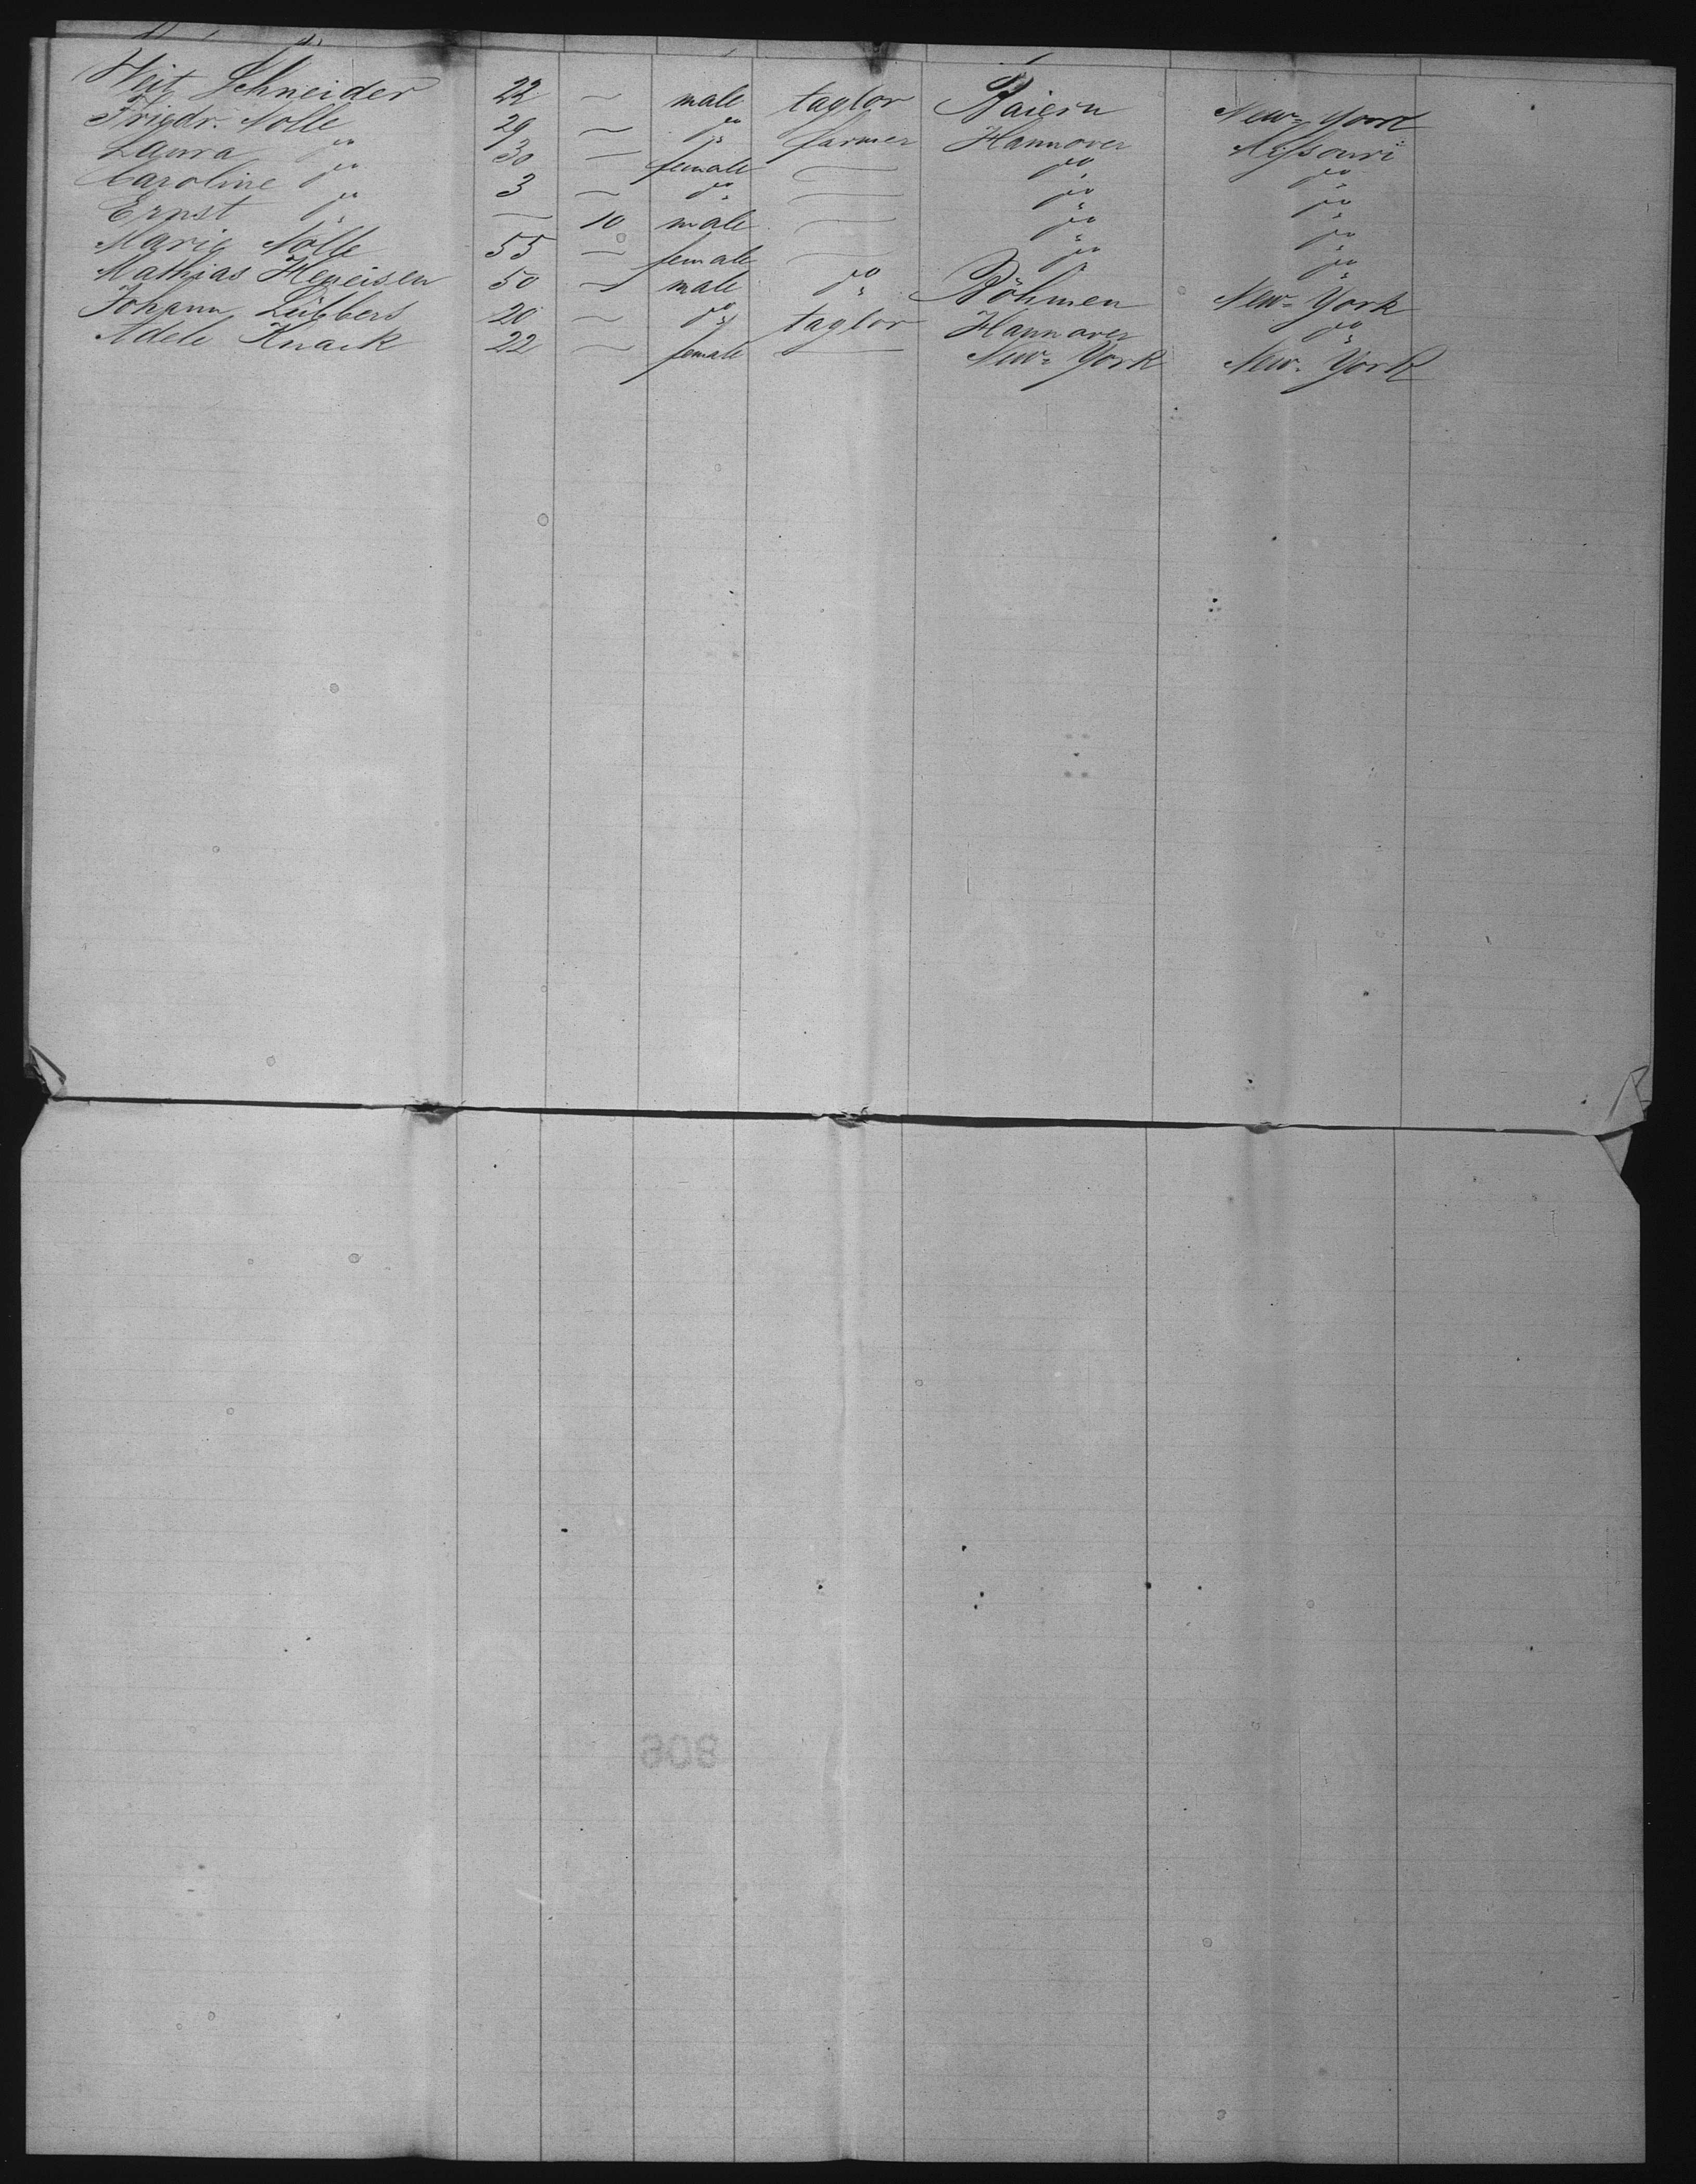 Veit Schneider 22 — male taylor Baiern New-York
Friedr. Nolle 29 — do farmer Hannover Missouri
Laura do 30 — female — do do
Caroline do 3 — do — do do
Ernst do — 10 male — do do
Marie Nolle 55 — female — do do
Mathias 50 — male do Böhmen New-York
Johann Lübbers 20 — do taylor Hannover do
Adele Knack 22 — female — New-York New-York